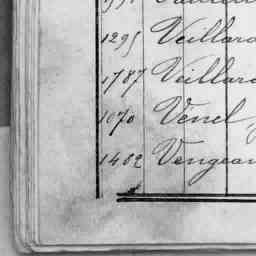 1295 Veillard
1787 Veillard
1070 Vénel
1402 Vengean